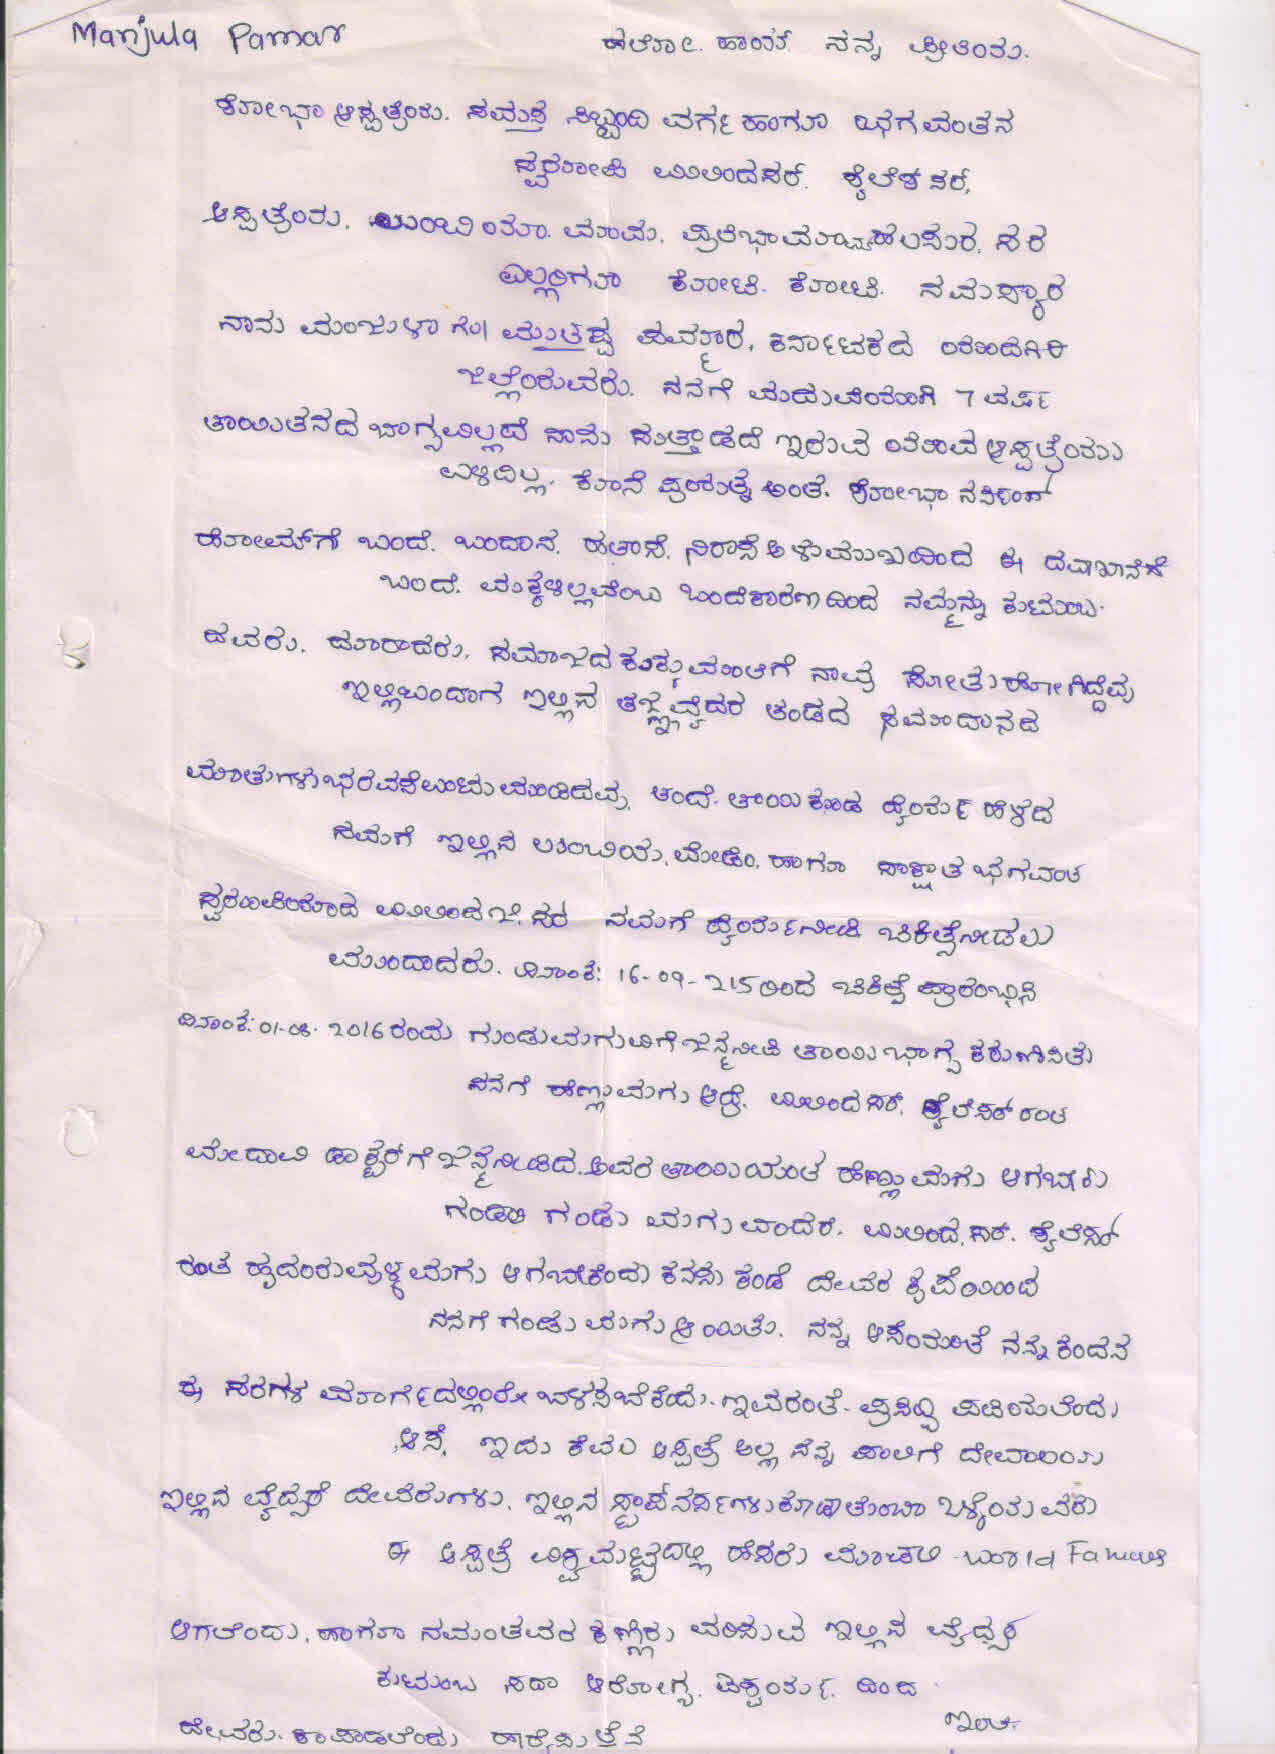 Manjula Pamar
ಹಲೋ. ಹಾಯ್ ನನ್ನ ಪ್ರೀತಿಯ.
ಶೋಭಾ ಆಸ್ಪತ್ರೆಯ. ಸಮಸ್ತ ಸಿಬ್ಬಂದಿ ವರ್ಗ ಹಾಗೂ ಭಗವಂತನ
ಸ್ವರೂಪಿ ಮಿಲಿಂದಸರ್. ಶೈಲೆಶ ಸರ್,
ಆಸ್ಪತ್ರೆಯ. ಮಾಮ. ಸರ
ಎಲ್ಲರಿಗೂ ಕೋಟಿ. ಕೋಟಿ. ನಮಸ್ಕಾರ
ನಾನು ಮಂಜುಳಾ ಗಂ। ಮುತ್ತಪ್ಪ ಪಮ್ಮಾರ, ಕರ್ನಾಟಕದ ಯಾದಗಿರಿ
ಜಿಲ್ಲೆಯವರು. ನನಗೆ ಮದುವೆಯಾಗಿ 7 ವರ್ಷ
ತಾಯಿತನದ ಭಾಗ್ಯವಿಲ್ಲದೆ ನಾನು ಸುತ್ತಾಡದೆ ಇರುವ ಯಾವ ಆಸ್ಪತ್ರೆಯು
ಉಳಿದಿಲ್ಲ. ಕೊನೆ ಪ್ರಯತ್ನ ಅಂತ. ಶೋಭಾ ನರ್ಸಿಂಗ್
ಹೋಮ್‌ಗೆ ಬಂದೆ. ಬಂದಾಗ. ಹತಾಸೆ, ನಿರಾಸೆ ಅಳುಮುಖದಿಂದ ಈ ದವಾಖಾನೆಗೆ
ಬಂದೆ. ಮಕ್ಕಳಿಲ್ಲವೆಂಬ ಒಂದೆಕಾರಣದಿಂದ ನಮ್ಮನ್ನು ಕುಟುಂಬ.
ದವರು. ದೂರಾದರು. ಸಮಾಜದ ಚುಚ್ಚುಮಾತಿಗೆ ನಾವು ಸೋತು ಹೋಗಿದ್ದೆವು
ಇಲ್ಲಿಬಂದಾಗ ಇಲ್ಲಿನ ತಜ್ಞವೈದ್ಯರ ತಂಡದ ಸಮಾದಾನದ
ಮಾತುಗಳು ಭರವಸೆಉಂಟು ಮಾಡಿದವು. ತಂದೆ. ತಾಯಿ ಕೂಡ ಧೈರ್ಯ ಹೇಳದ
ನಮಗೆ ಇಲ್ಲಿನ ಮೇಡಂ. ಹಾಗೂ ಸಾಕ್ಷಾತ ಭಗವಂತ
ಸ್ವರೂಪಿಯಾದ ಮಿಲಿಂದ ಜಿ. ಸರ ನಮಗೆ ಧೈರ್ಯನೀಡಿ ಚಿಕಿತ್ಸೆನೀಡಲು
ಮುಂದಾದರು. ದಿನಾಂಕ: 16-09-215 ರಿಂದ ಚಿಕಿತ್ಸೆ ಪ್ರಾರಂಭಿಸಿ
ದಿನಾಂಕ: 01-08-2016 ರಂದು ಗಂಡುಮಗುವಿಗೆ ಜನ್ಮನೀಡಿ ತಾಯಿ ಭಾಗ್ಯ ಕರುಣಿಸಿತು
ನನಗೆ ಹೆಣ್ಣುಮಗು ಆದ್ರೆ. ಮಿಲಿಂದ ಸರ್. ಶೈಲೆಸರ್ ರಂತ
ಮೇದಾವಿ ಡಾಕ್ಟರ್‌ಗೆ ಜನ್ಮನೀಡಿದ. ಅವರ ತಾಯಿಯಂತ ಹೆಣ್ಣುಮಗು ಆಗಬೇಕು
ಗಂಡಾದ್ರೆ ಗಂಡು ಮಗುವಾದರೆ. ಮಿಲಿಂದ. ಸರ್. ಶೈಲೆಸರ್
ರಂತ ಹೃದಯವುಳ್ಳ ಮಗು ಆಗಬೇಕೆಂದು ಕನಸು ಕಂಡೆ ದೇವರ ಕೃಪೆಯಿಂದ
ನನಗೆ ಗಂಡು ಮಗು ಆಯಿತು. ನನ್ನ ಆಸೆಯಂತೆ ನನ್ನ ಕಂದನ
ಈ ಸರಗಳ ಮಾರ್ಗದಲ್ಲಿಯೇ ಬೆಳಸಬೆಕೆಂದು. ಇವರಂತೆ. ಪ್ರಸಿದ್ಧಿ ಪಡೆಯಲೆಂದು
ಆಸೆ, ಇದು ಕೇವಲ ಆಸ್ಪತ್ರೆ ಅಲ್ಲ ನನ್ನ ಪಾಲಿಗೆ ದೇವಾಲಯ
ಇಲ್ಲಿನ ವೈದ್ಯರೆ ದೇವರುಗಳು. ಇಲ್ಲಿನ ಸ್ಟಾಪ್ ನರ್ಸಗಳು ಕೂಡ ತುಂಬಾ ಒಳ್ಳೆಯವರು
ಈ ಆಸ್ಪತ್ರೆ ವಿಶ್ವಮಟ್ಟದಲ್ಲಿ ಹೆಸರು ಮಾಡಲಿ World Famous
ಆಗಲೆಂದು. ಹಾಗೂ ನಮಂತವರ ಕಣ್ಣಿರು ವರಿಸುವ ಇಲ್ಲಿನ ವೈದ್ಯರ
ಕುಟುಂಬ ಸದಾ ಆರೋಗ್ಯ. ಐಶ್ವರ್ಯ. ದಿಂದ
ದೇವರು. ಕಾಪಾಡಲೆಂದು ಹಾರೈಸುತ್ತೆನೆ
ಇಂತಿ.